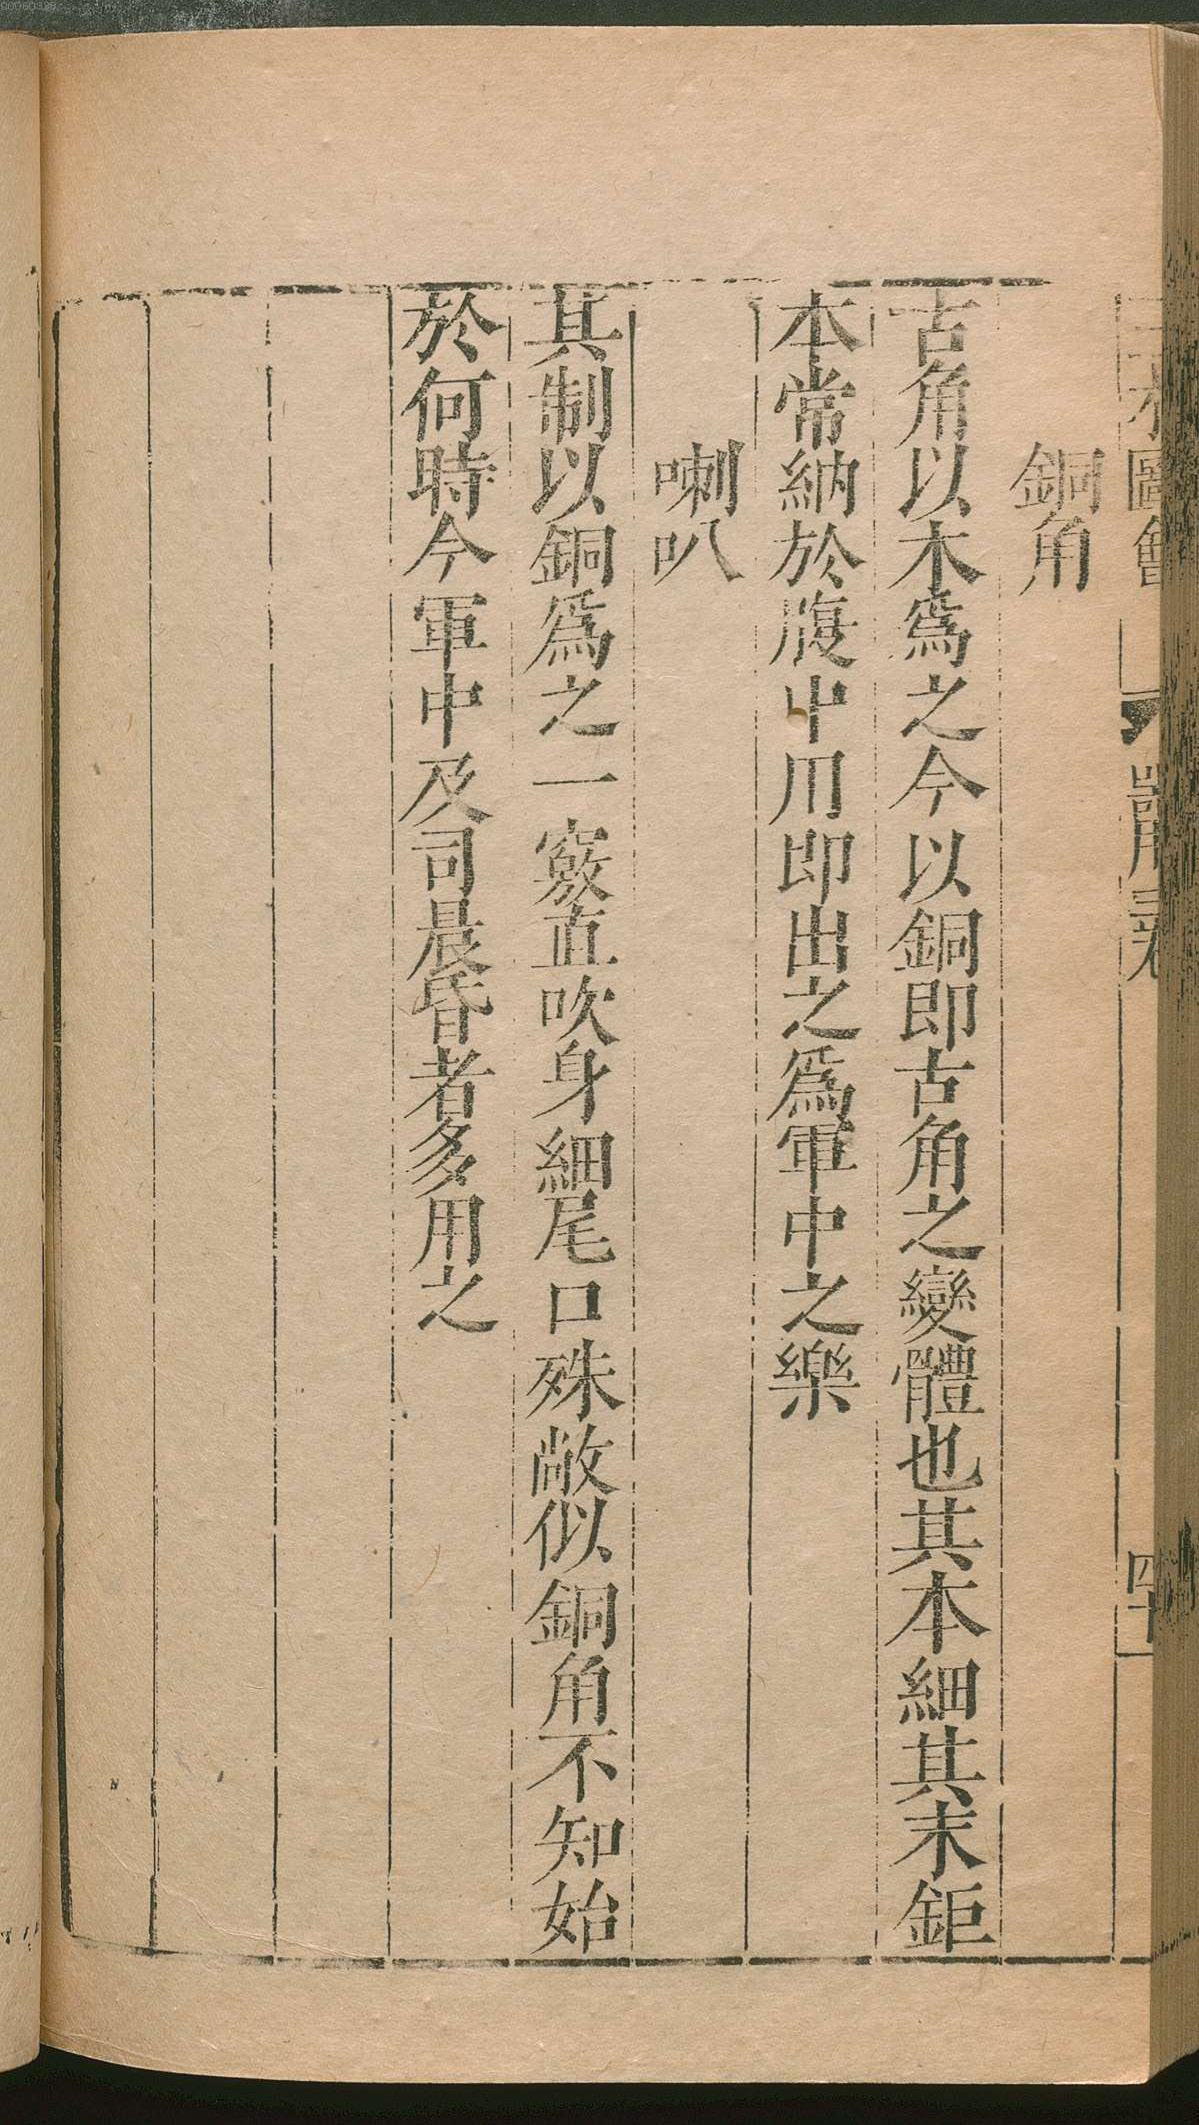 圖會
器用三卷
四十
銅角
古角以木爲之今以銅即古角之變體也其本細其末鉅
本常納於腹中用即出之爲軍中之樂
喇叭
其制以銅爲之一竅直吹身細尾口殊敞似銅角不知始
於何時今軍中及司晨昏者多用之